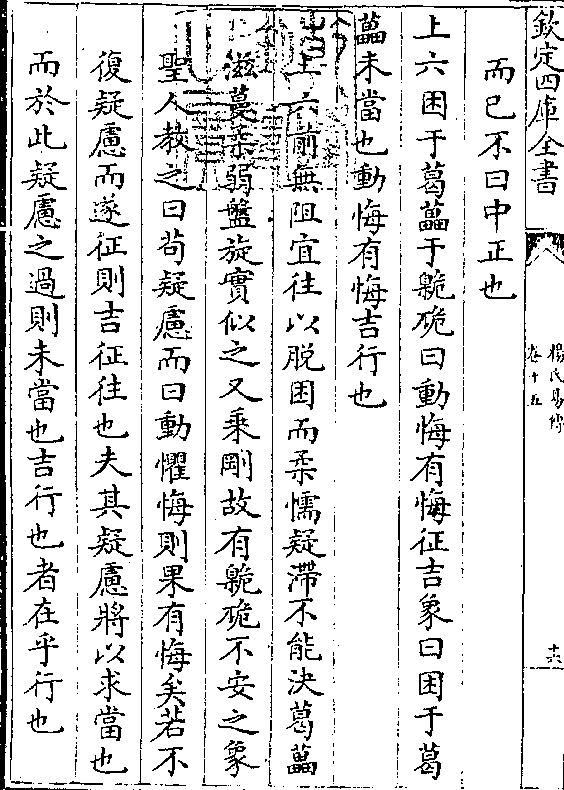 欽定四庫全書
楊氏易傳
卷十五
十六
而已不曰中正也
上六困于葛藟于臲卼曰動悔有悔征吉象曰困于葛
藟未當也動悔有悔吉行也
上六前無阻宜往以脱困而柔懦疑滯不能決葛藟
滋蔓柔弱盤旋實似之又乘剛故有臲卼不安之象
聖人教之曰苟疑慮而曰動懼悔則果有悔矣若不
復疑慮而遂征則吉征往也夫其疑慮將以求當也
而於此疑慮之過則未當也吉行也者在乎行也